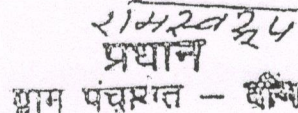 रामस्वरूप
प्रधान
ग्राम पंचायत –